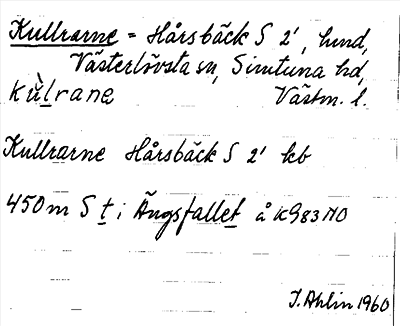 Kullrarne = Hårsbäck S 2', hmd,
Västerlövsta sn, Simtuna hd,
kùlrane Västm. l.
Kullrarne Hårsbäck S 2' kb
450 m S t i Ängsfallet å KG83 NO
J. Ahlin 1960